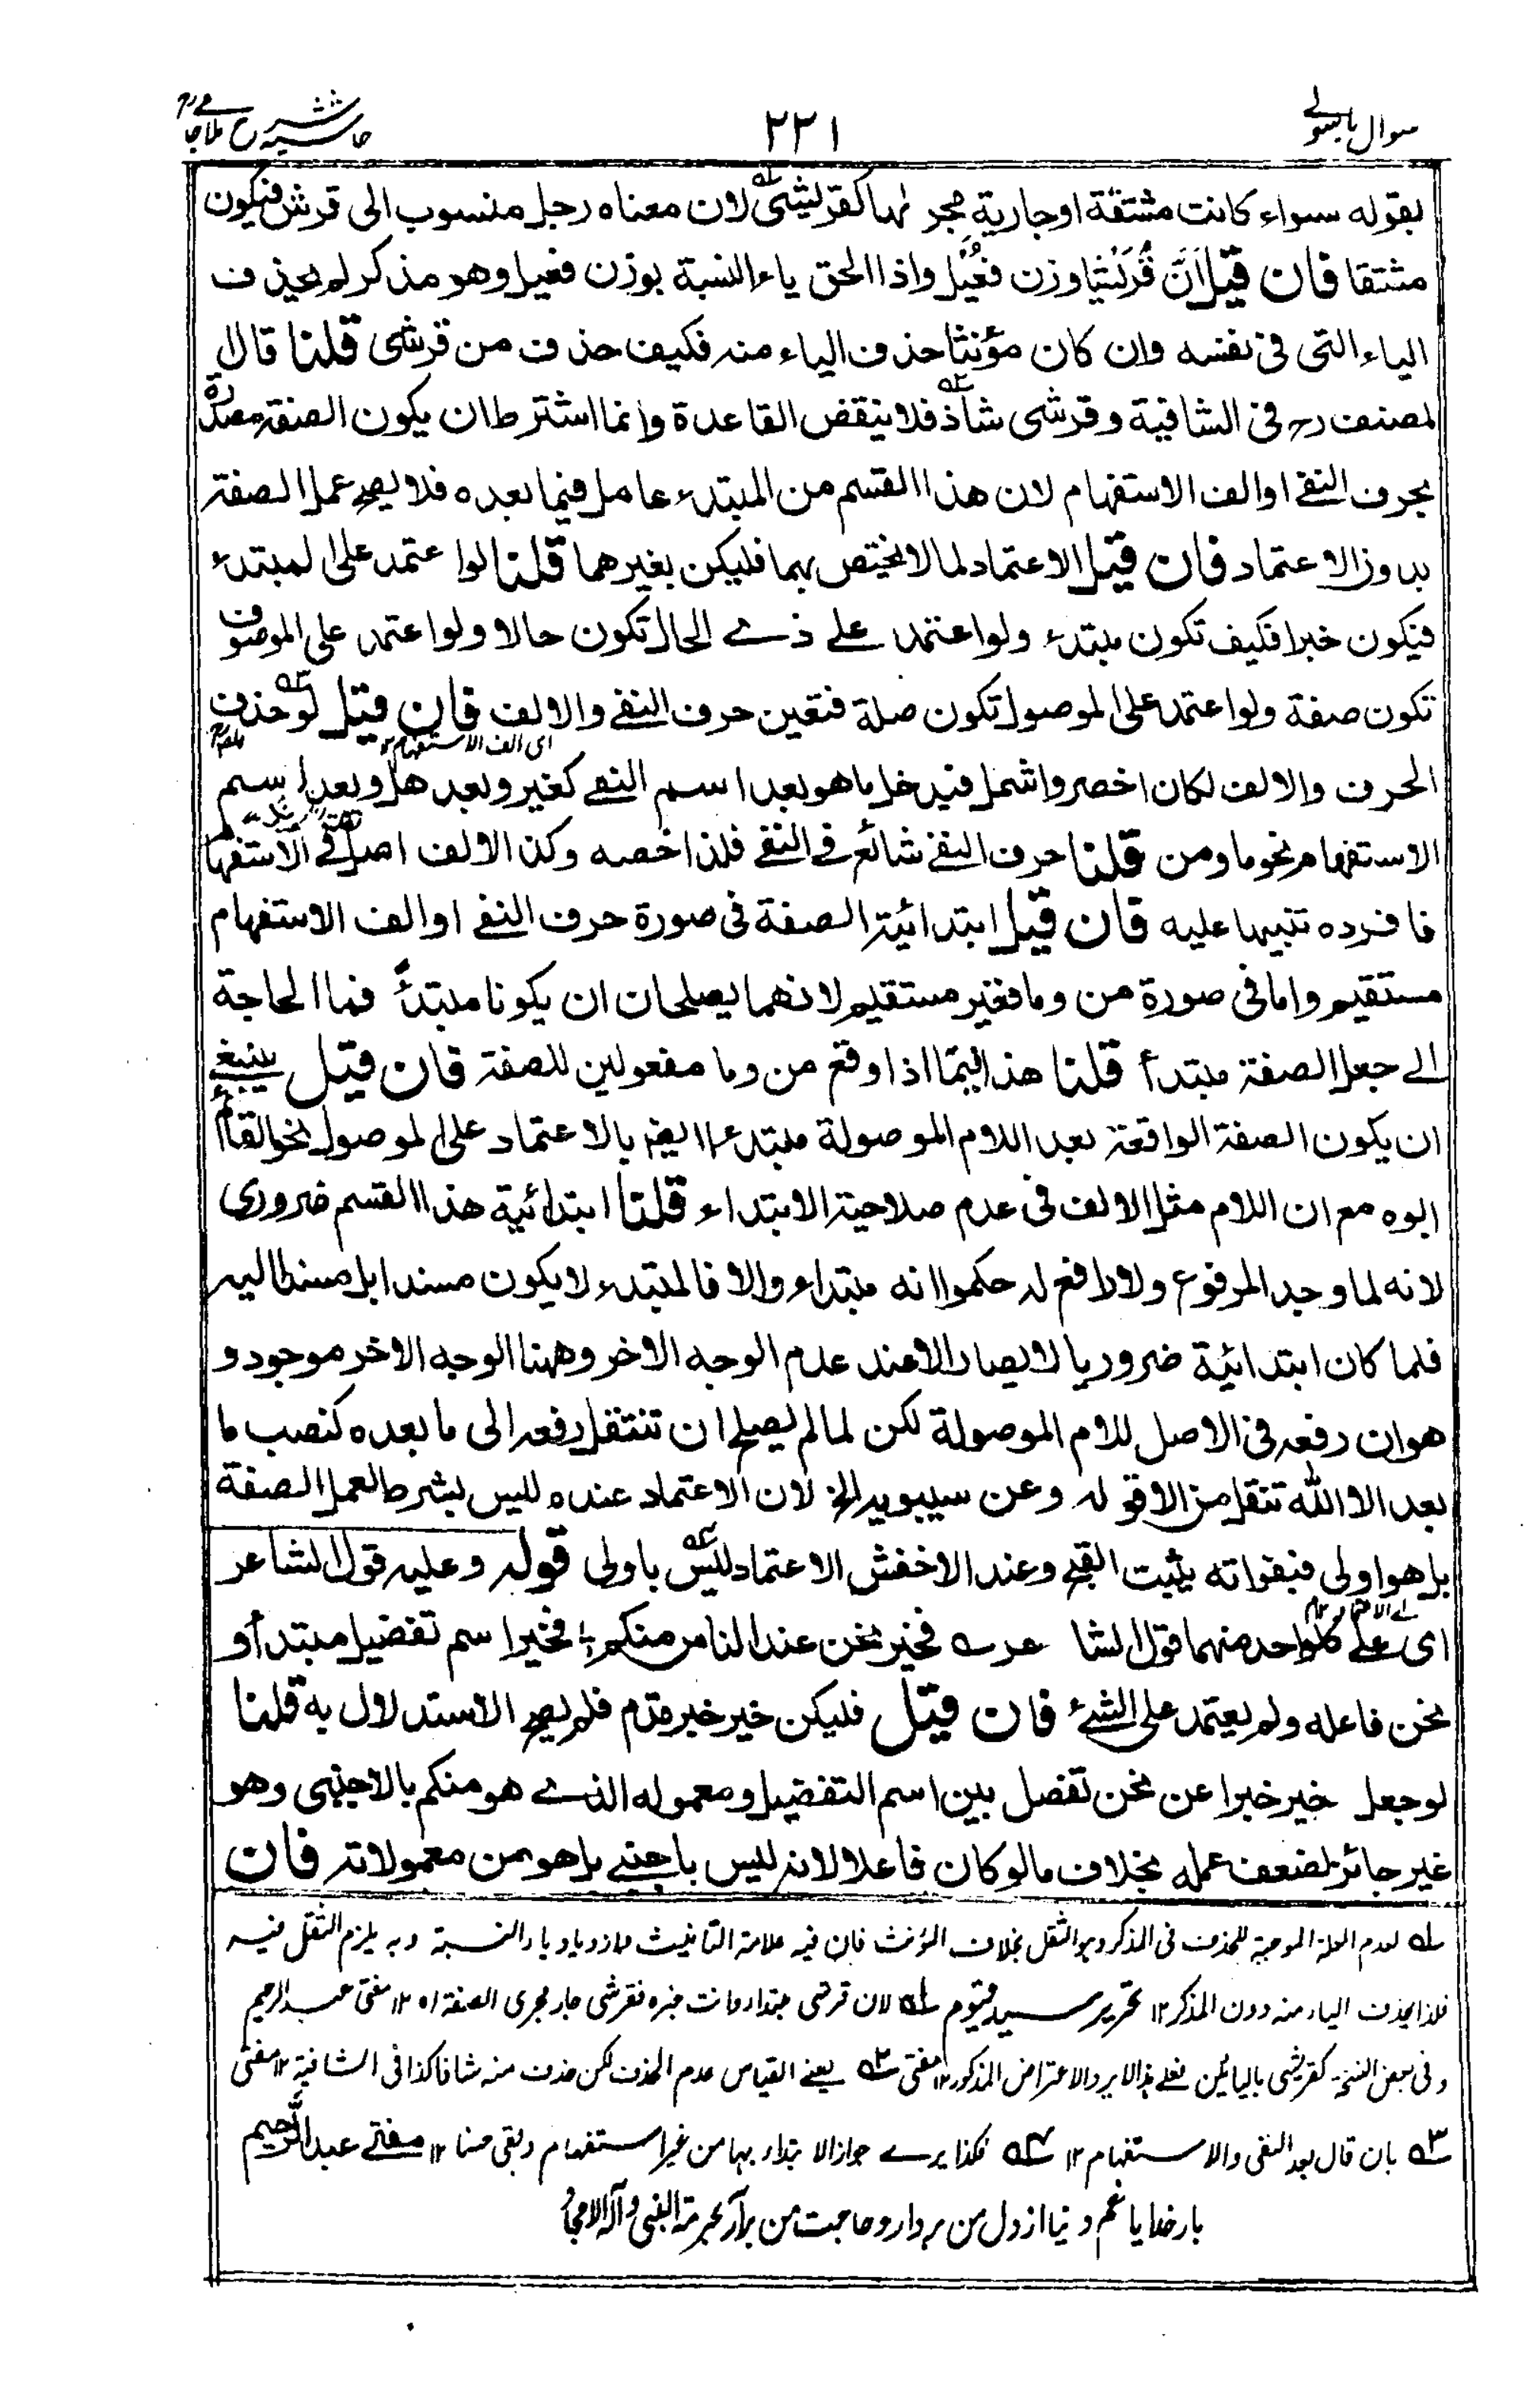 سوال باسولی
٢٢١
حاشیہ شرح ملا جامی
بقوله سواء كانت مشتقة او جارية مجراها كقريشى لان معناه رجل منسوب الى قرش فيكون
مشتقا فان قيل ان قُرَيْشيا وزن فُعَيْل واذا الحق ياء النسبة بوزن فعيل وهو مذكر لم يحذف
الياء التى فى نفسه وان كان مؤنثا حذف الياء منه فكيف حذف من قرشى قلنا قال
لمصنف رح فى الشافية وقرشى شاذ فلا ينقض القاعدة وانما اشترط ان يكون الصفة مصدرة
بحرف النفى او الف الاستفهام لان هذا القسم من المبتدء عامل فيما بعده فلا يصح عمل الصفة
بدون الاعتماد فان قيل الاعتماد لما لا يختص بهما فليكن بغيرهما قلنا لو اعتمد على المبتدء
فيكون خبرا فكيف تكون مبتدء ولو اعتمد على ذى الحال تكون حالا ولو اعتمد على الموصوف
تكون صفة ولو اعتمد على الموصول تكون صلة فتعين حرف النفى والالف فان قيل لو حذف
اى الف الاستفهام
الحرف والالف لكان اخصر واشمل فيدخل ما هو بعد اسم النفى كغير وبعد هل وبعد اسم
الاستفهام نحو ما ومن قلنا حرف النفى شائع فى النفى فلذا خصه وكذا الالف اصل فى الاستفها
فافرده تنبيها عليه فان قيل ابتدائية الصفة فى صورة حرف النفى او الف الاستفهام
مستقيم واما فى صورة من وما فغير مستقيم لانهما يصلحان ان يكونا مبتدأ فما الحاجة
الى جعل الصفة مبتدأ قلنا هذا فيما اذا وقع من وما مفعولين للصفة فان قيل ينبغى
ان يكون الصفة الواقعة بعد اللام الموصولة مبتدء ايضا بالاعتماد على الموصول نحو القائم
ابوه مع ان اللام مثل الالف فى عدم صلاحية الابتداء قلنا ابتدائية هذا القسم ضرورى
لانه لما وجد المرفوع ولا رافع له حكموا انه مبتداء والا فالمبتدء لا يكون مسندا بل مسندا اليه
فلما كان ابتدائية ضروريا لا يصار الا عند عدم الوجه الاخر وههنا الوجه الاخر موجود و
هو ان رفعه فى الاصل للام الموصولة لكن لما لم يصلح ان تنتقل رفعه الى ما بعده كنصب ما
بعد الا الله تنقل من الا قوله وعن سيبويه الخ لان الاعتماد عنده ليس بشرط لعمل الصفة
بل هو اولى فبفواته يثبت القبح وعند الاخفش الاعتماد ليس باولى قوله وعليه قول الشاعر
اى على كل واحد منهما قول الشاعر ؎ فخير نحن عند الناس منكم ؛ فخير اسم تفضيل مبتدأ و
نحن فاعله ولم يعتمد على الشئ فان قيل فليكن خير خبر مقدم فلم يصح الاستدلال به قلنا
لو جعل خير خبرا عن نحن تفصل بين اسم التفضيل ومعموله الذى هو منكم بالاجنبى وهو
غير جائز لضعف عمله بخلاف ما لو كان فاعلا لانه ليس باجنبى بل هو من معمولاته فان
لـه لعدم العلة الموجبة للحذف فى المذكر وهو الثقل بخلاف المؤنث فان فيه علامة التانيث وازدياد ياء النسبة وبه يلزم الثقل فيه
فلذا يحذف الياء منه دون المذكر ١٢ تحرير سيد قيوم لـه لان قرشى مبتداء وانت خبره فقرشى جار مجرى الصفة ١٢ مفتى عبدالرحيم
وفى بعض النسخ كقريشى باليائين فعلى هذا لا يرد الاعتراض المذكور ١٢ مفتى ٢ـه يعنى القياس عدم الحذف لكن حذف منه شاذا كذا فى الشافية ١٢ مفتى
٣ـه بان قال بعد النفى والاستفهام ١٢ ٤ـه فكذا يرى جواز الابتداء بها من غير استفهام وبقى حسنا ١٢ مفتى عبدالرحيم
بار خدايا غم دنيا از دل من بردار وحاجت من برآر بحرمة النبى وآله الامجاد